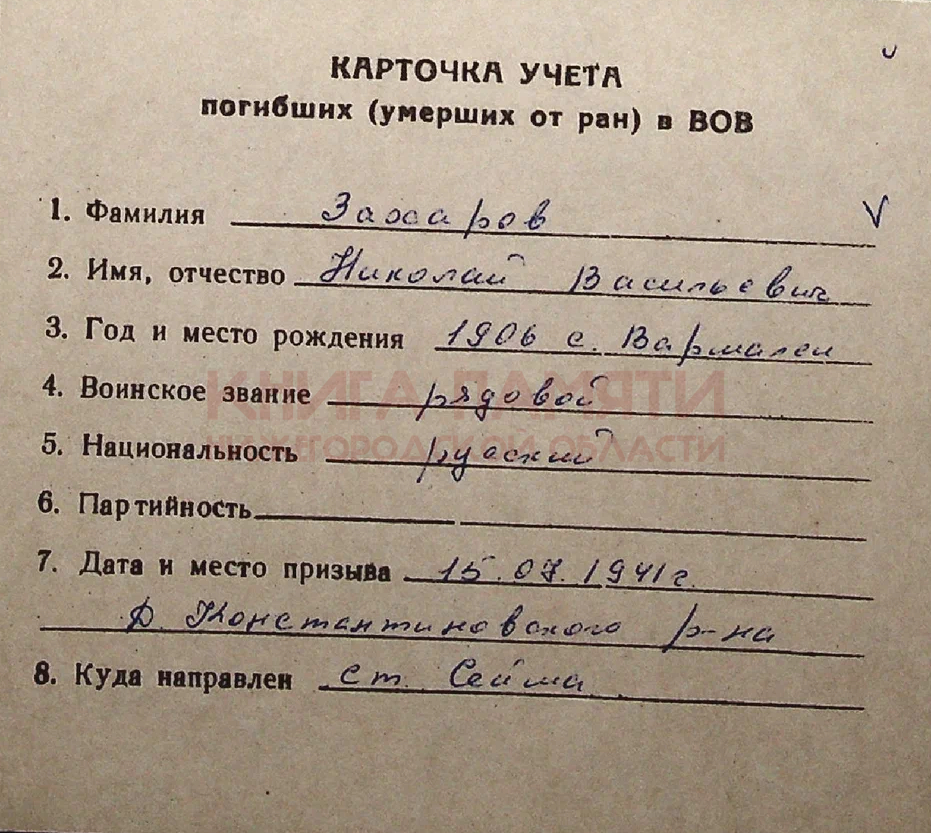 КАРТОЧКА УЧЕТА
погибших (умерших от ран) в ВОВ
1. Фамилия Захаров
2. Имя, отчество Николай Васильевич
3. Год и место рождения 1906 с. Вармалеи
4. Воинское звание рядовой
КНИГА ПАМЯТИ
5. Национальность русский
НИЖЕГОРОДСКОЙ ОБЛАСТИ
6. Партийность
7. Дата и место призыва 15.07.1941г.
Д. Константиновского р-на
8. Куда направлен ст. Сейма